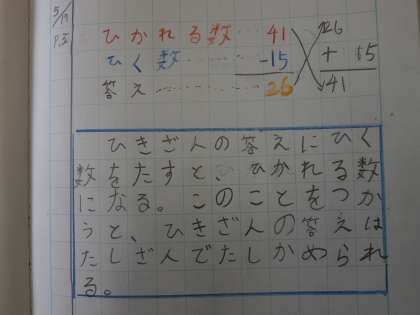 5/17
P.51
ひかれる数……41 26
ひく数………-15 + 15
答え…………26 41
ひきざんの答えにひく
数をたすと、ひかれる数
になる。このことをつか
うと、ひきざんの答えは
たしざんでたしかめられ
る。